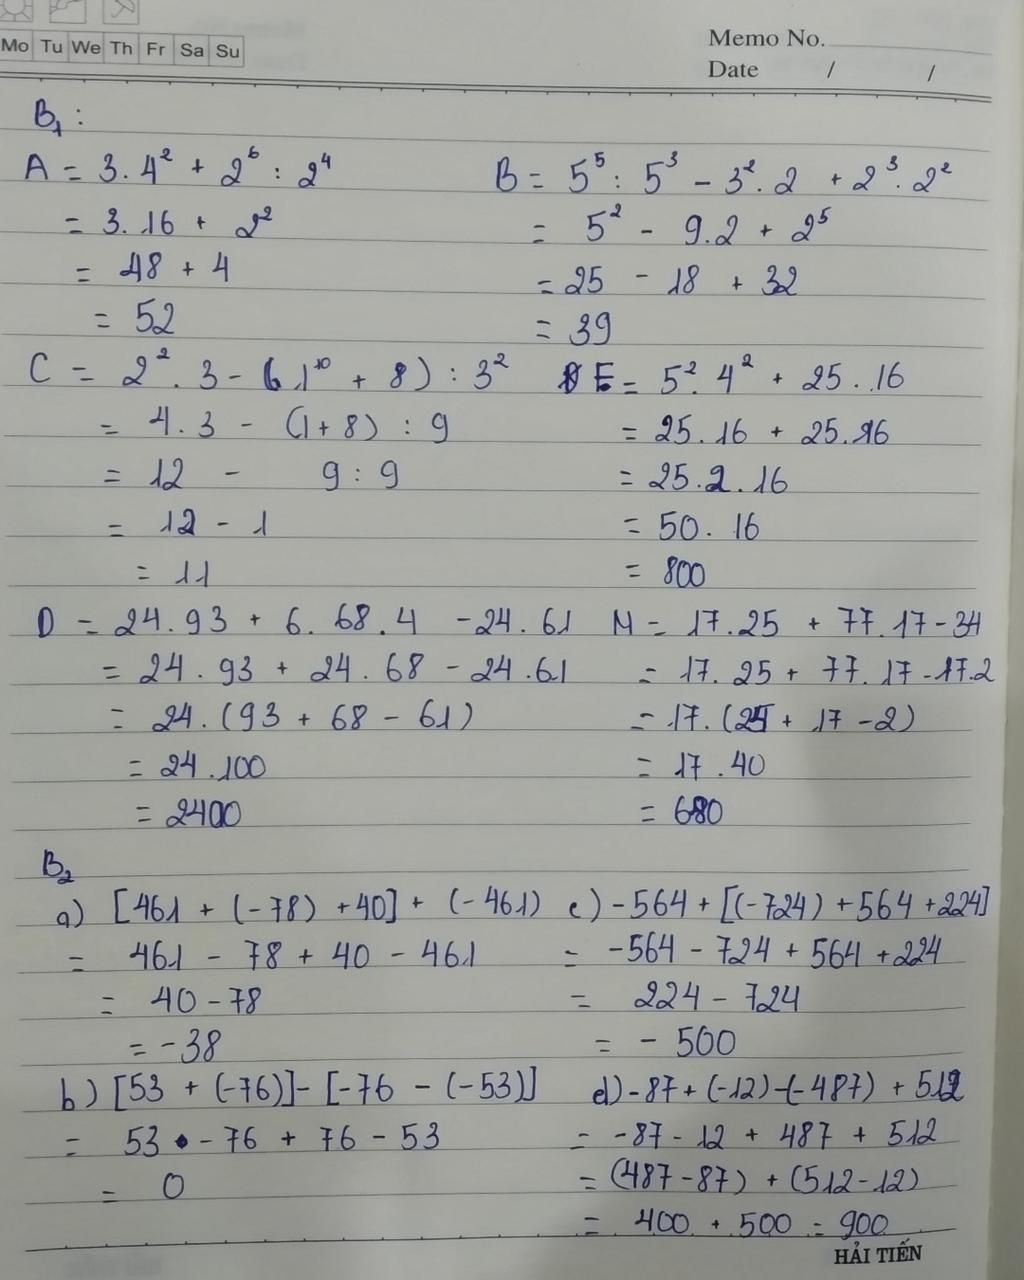 Mo Tu We Th Fr Sa Su
Memo No.
Date / /
B₁ :
A = 3.4² + 2⁶ : 2⁴
= 3.16 + 2²
= 48 + 4
= 52
B = 5⁵ : 5³ - 3².2 + 2³.2²
= 5² - 9.2 + 2⁵
= 25 - 18 + 32
= 39
C = 2².3 - (1¹⁰ + 8) : 3²
= 4.3 - (1+8) : 9
= 12 - 9 : 9
= 12 - 1
= 11
E = 5².4² + 25.16
= 25.16 + 25.16
= 25.2.16
= 50.16
= 800
D = 24.93 + 6.68.4 - 24.61
= 24.93 + 24.68 - 24.61
= 24.(93 + 68 - 61)
= 24.100
= 2400
M = 17.25 + 77.17 - 34
= 17.25 + 77.17 - 17.2
= 17.(25 + 17 - 2)
= 17.40
= 680
B₂
a) [461 + (-78) + 40] + (-461)
= 461 - 78 + 40 - 461
= 40 - 78
= -38
c) -564 + [(-724) + 564 + 224]
= -564 - 724 + 564 + 224
= 224 - 724
= - 500
b) [53 + (-76)] - [-76 - (-53)]
= 53 - 76 + 76 - 53
= 0
d) -87 + (-12) - (-487) + 512
= -87 - 12 + 487 + 512
= (487 - 87) + (512 - 12)
= 400 + 500 = 900
HẢI TIẾN